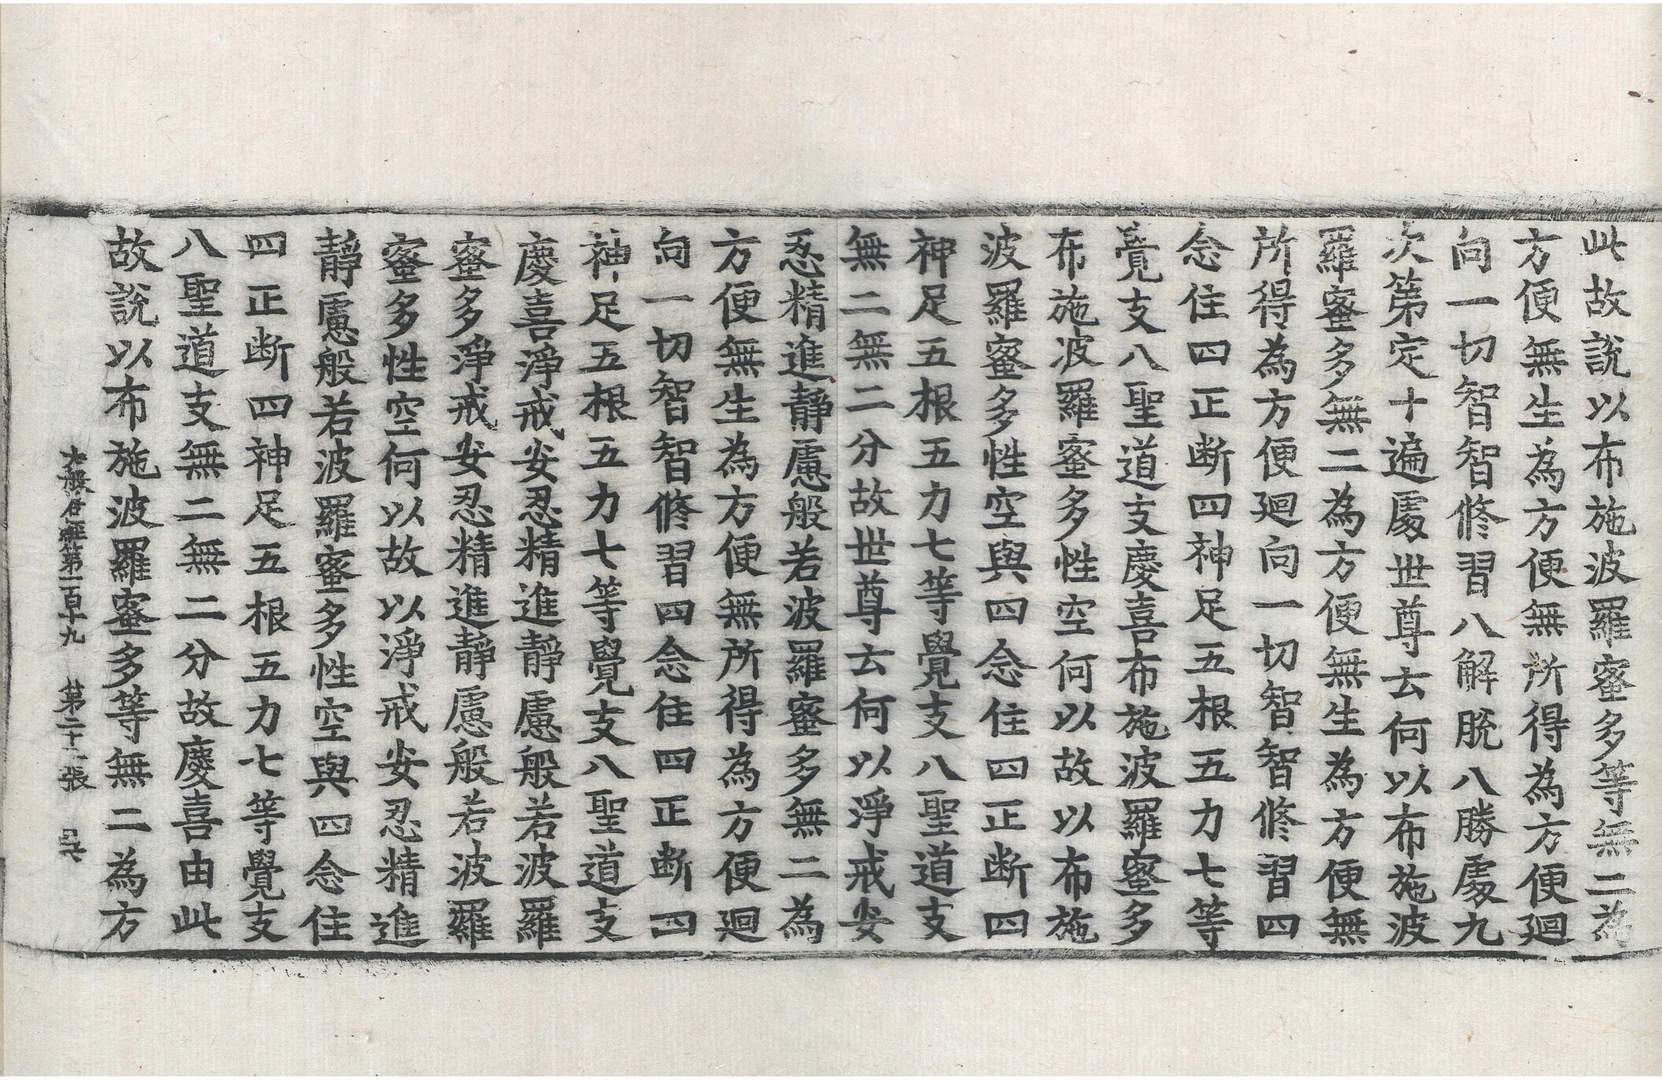 此故說以布施波羅蜜多等無二為
方便無生為方便無所得為方便廻
向一切智智修習八解脫八勝處九
次第定十遍處世尊云何以布施波
羅蜜多無二為方便無生為方便無
所得為方便廻向一切智智修習四
念住四正断四神足五根五力七等
覺支八聖道支慶喜布施波羅蜜多
布施波羅蜜多性空何以故以布施
波羅蜜多性空與四念住四正断四
神足五根五力七等覺支八聖道支
無二無二分故世尊云何以淨戒安
忍精進靜慮般若波羅蜜多無二為
方便無生為方便無所得為方便廻
向一切智智修習四念住四正断四
神足五根五力七等覺支八聖道支
慶喜淨戒安忍精進靜慮般若波羅
蜜多淨戒安忍精進靜慮般若波羅
蜜多性空何以故以淨戒安忍精進
靜慮般若波羅蜜多性空與四念住
四正断四神足五根五力七等覺支
八聖道支無二無二分故慶喜由此
故說以布施波羅蜜多等無二為方
大般若經第一百十九 第二十一張 昃